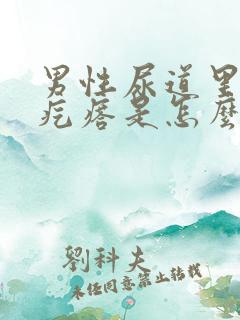 男性尿道里
疙瘩是怎麼
劉科夫
未经同意禁止转载